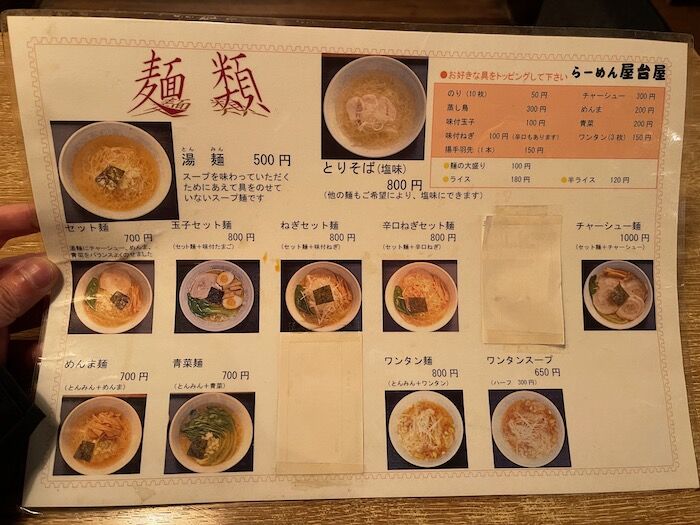 麺類
●お好きな具をトッピングして下さい
らーめん屋台屋
のり(10枚) 50円
チャーシュー 300円
蒸し鳥 300円
めんま 200円
味付玉子 100円
青菜 200円
味付ねぎ 100円(辛口もあります)
ワンタン(3枚) 150円
揚手羽先(1本) 150円
●麺の大盛り 100円
●ライス 180円
●半ライス 120円
とんみん
湯麺 500円
スープを味わっていただく
ためにあえて具をのせて
いないスープ麺です
とりそば(塩味)
800円
(他の麺もご希望により、塩味にできます)
セット麺
700円
湯麺にチャーシュー、めんま、
青菜をバランスよくのせました
玉子セット麺
800円
(セット麺+味付たまご)
ねぎセット麺
800円
(セット麺+味付ねぎ)
辛口ねぎセット麺
800円
(セット麺+辛口ねぎ)
チャーシュー麺
1000円
(セット麺+チャーシュー)
めんま麺
700円
(とんみん+めんま)
青菜麺
700円
(とんみん+青菜)
ワンタン麺
800円
(とんみん+ワンタン)
ワンタンスープ
650円
(ハーフ 300円)